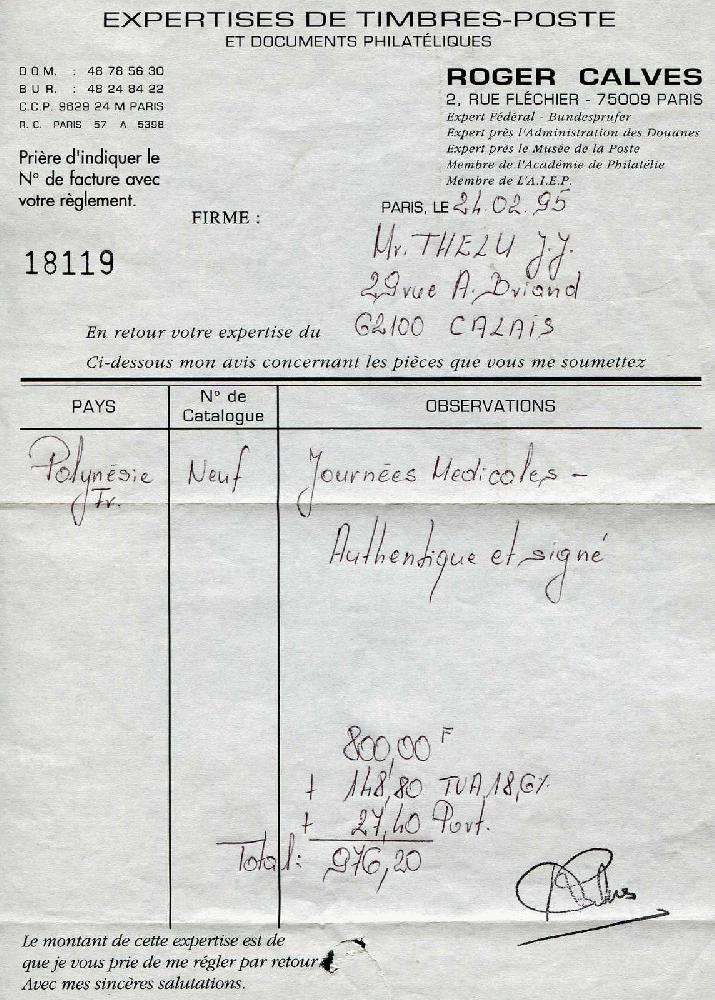 EXPERTISES DE TIMBRES-POSTE
ET DOCUMENTS PHILATÉLIQUES
DOM. : 48 78 56 30
BUR. : 48 24 84 22
C.C.P. 9629 24 M PARIS
R.C. PARIS 57 A 5398
ROGER CALVES
2, RUE FLÉCHIER - 75009 PARIS
Expert Fédéral - Bundesprufer
Expert près l'Administration des Douanes
Expert près le Musée de la Poste
Membre de l'Académie de Philatélie
Membre de L'A.I.E.P.
Prière d'indiquer le
N° de facture avec
votre règlement.
FIRME :
PARIS, LE 24.02.95
18119
Mr. THELU J.J.
29 rue A. Briand
62100 CALAIS
En retour votre expertise du
Ci-dessous mon avis concernant les pièces que vous me soumettez
PAYS
N° de
Catalogue
OBSERVATIONS
Polynésie
Fr.
Neuf
Journées Medicales -
Authentique et signé
800,00 F
+ 148,80 TVA 18,6%
+ 27,40 Port.
Total: 976,20
Le montant de cette expertise est de
que je vous prie de me régler par retour.
Avec mes sincères salutations.